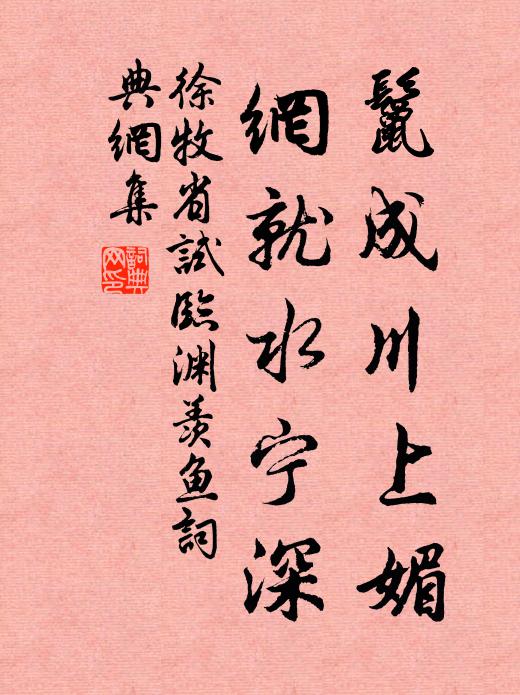 鬣成川上媚
網就水宁深
徐牧省試臨渊羨鱼詞
典網集
詞典網印